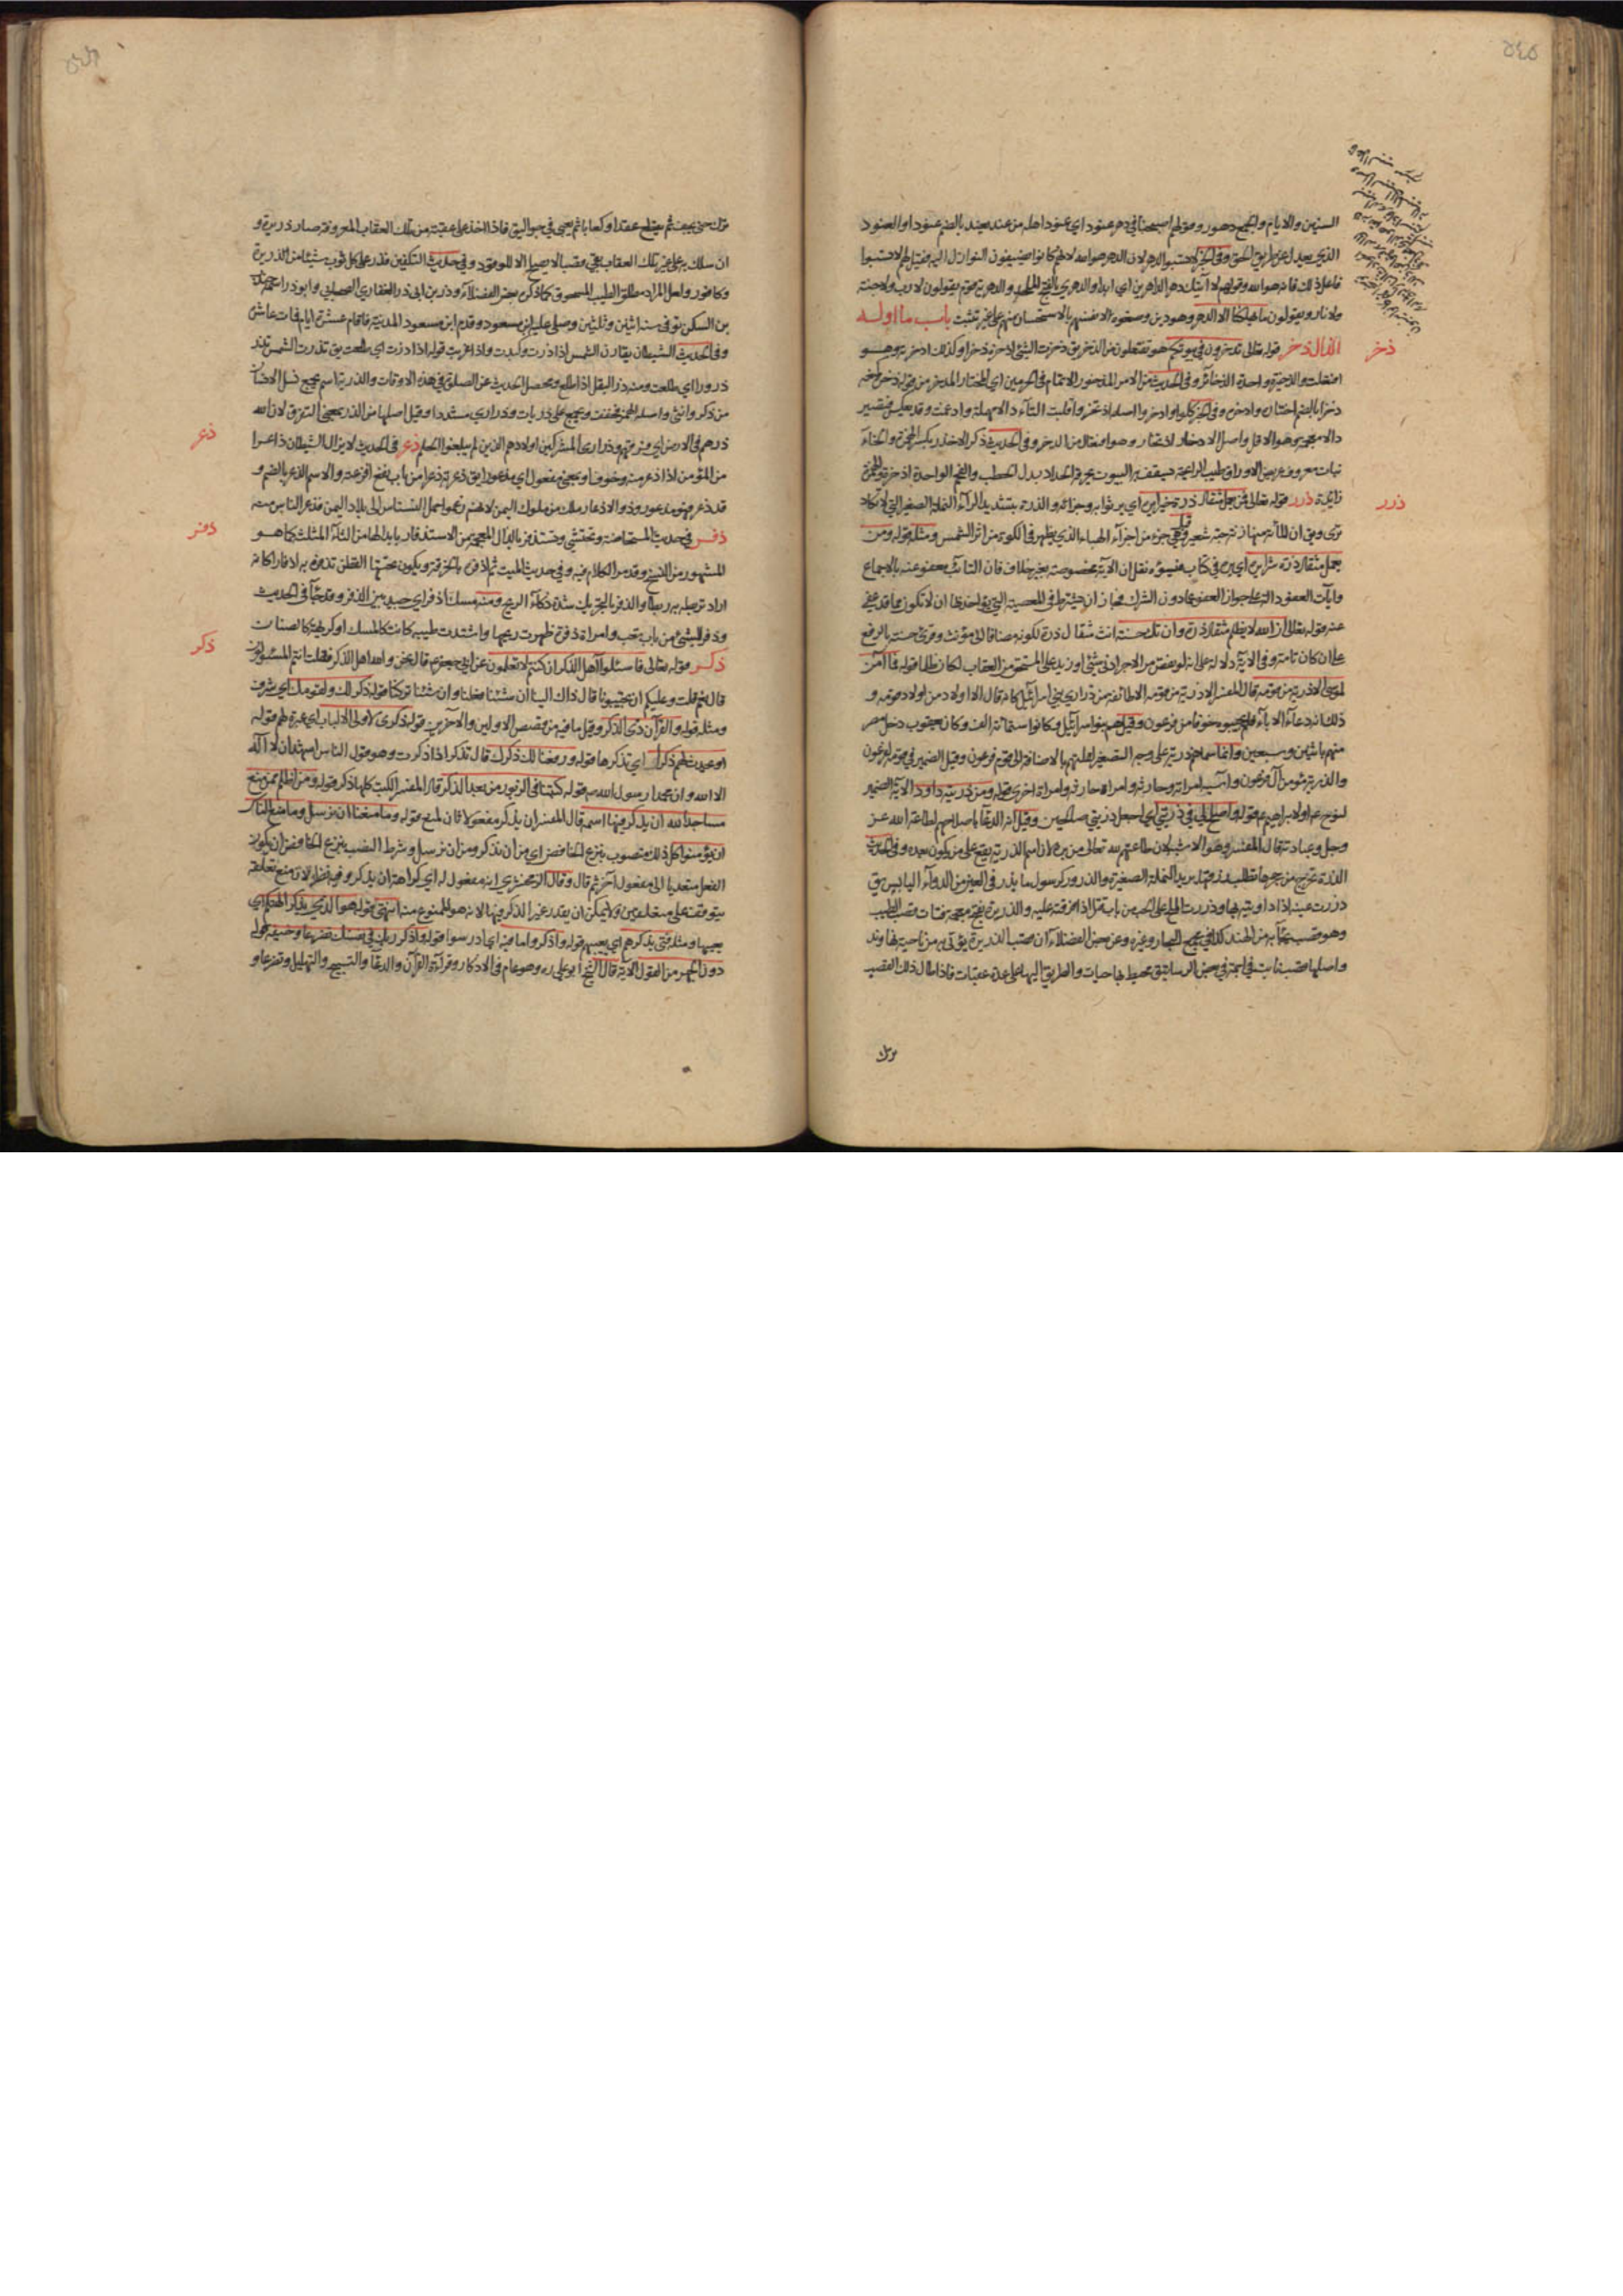 ٥٤٥
السنين والايام والجمع دهور وقولهم اصبحنا في دهر عنود اي عنود اهله من عند يعند بالضم عنودا والعنود
الذي يعدل عن طريق الحق وفي الخبر لا تسبوا الدهر لان الدهر هو الله لانهم كانوا يضيفون النوازل اليه فقيل لهم لا تسبوا
فاعل ذلك فانه هو الله وقولهم لا آتيك دهر الداهرين اي ابدا والدهري بالفتح الملحد والدهرية قوم يقولون لا رب ولا جنة
ولا نار ويقولون ما يهلكنا الا الدهر وهو دين وضعوه لانفسهم بالاستحسان منهم على غير تثبت باب ما اوله
الذال ذخر قوله تعالى تدخرون في بيوتكم هو تفتعلون من الذخر يق ذخرت الشئ اذخره ذخرا وكذلك اذخرته وهو
ذخر
افتعلت والذخيرة واحدة الذخائر وفي الحديث من الامر المذخور الاتمام في الحرمين اي المختار المدخر من قوله ذخره كمنعه
ذخرا بالضم اختاره وادخره وفي الخبر كلوا وادخروا واصله اذتخر وا قلبت التاء دالا مهملة وادغمت وقد يعكس فتصير
ذالا معجمة وهو الاقل واصل الادخار اذتخار وهو افتعال من الذخر وفي الحديث ذكر الاذخر بكسر الهمزة والخاء
نبات معروف عريض الاوراق طيب الرايحة يسقف به البيوت يحرقه الحداد بدل الحطب والفحم الواحدة اذخرة والهمزة
زايدة ذرر قوله تعالى فمن يعمل مثقال ذرة خيرا يره اي يرثوابه وجزائه والذرة بتشديد الراء النملة الصغيرة التي لا تكاد
ذرر
ترى ويق ان المائة منها زنة حبة شعير وقيل هي جزء من اجزاء الهباء الذي يظهر في الكوة من اثر الشمس ومثله قوله ومن
يعمل مثقال ذرة شرا يره اي يره في كتابه فيسوءه نقل ان الآية مخصوصة بغير خلاف فان التائب معفو عنه بالاجماع
وآيات العفو دالة على جواز العفو عما دون الشرك فجاز ان يشترط في المعصية التي يؤاخذ بها ان لا تكون مما قد عفي
عنه قوله تعالى ان الله لا يظلم مثقال ذرة وان تك حسنة انث مثقال ذرة لكونه مضافا الى مؤنث وقرئ حسنة بالرفع
على ان كان تامة وفي الآية دلالة على انه لو نقص من الاجر ادنى شئ او زيد على المستحق من العقاب لكان ظلما قوله فما آمن
لموسى الا ذرية من قومه قال المفسر الا ذرية من قومه الا طائفة من ذراري بني اسرائيل كانه قال الا اولاد من اولاد قومه و
ذلك انه دعا الاباء فلم يجيبوه خوفا من فرعون وقيل هم بنو اسرائيل وكانوا ستمائة الف وكان يعقوب دخل مصر
منهم باثنين وسبعين وانما سماهم ذرية على وجه التصغير لقلتهم بالاضافة الى قوم فرعون وقيل الضمير في قومه لفرعون
والذرية مؤمن آل فرعون وآسية امراته وخازنه وامراة خازنه وامراة اخرى قوله ومن ذريته داود الآية الضمير
لنوح ع او لابراهيم ع قوله واصلح لي في ذريتي اي اجعل ذريتي صالحين وقيل انه الدعاء باصلاحهم لطاعة الله عز
وجل وعبادته قال المفسر وهو الاشبه لان طاعتهم لله تعالى من بره لان اسم الذرية يقع على من يكون بعده وفي الحديث
الذرة تخرج من جحرها تطلب رزقها يريد النملة الصغيرة والذرور كرسول ما يذر في العين من الدواء اليابس يق
ذررت عينه اذا داويته بها وذررت الملح على الحب من باب قتل اذا فرقته عليه والذريرة بفتح معجمة فتات قصب الطيب
وهو قصب يجاء به من الهند كذا في مجمع البحار وغيره وعن بعض الفضلاء ان قصب الذريرة يؤتى به من ناحية نهاوند
واصلها قصب نابت في اجمة في بعض الرساتيق محيط بها حيات والطريق اليها على عدة عقبات فاذا طال ذلك القصب
ترك
ترك حتى يجف ثم يقطع عقدا وكعابا ثم يعبى في جواليق فاذا اخذ على عقبة من تلك العقاب المعروفة صار ذريرة و
ان سلك به على غير تلك العقاب بقي قصبا لا يصلح الا للوقود وفي حديث التكفين فذر على كل ثوب شيئا من الذريرة
وكافور ولعل المراد مطلق الطيب المسحوق كما ذكره بعض الفضلاء وذر بن ابي ذر الغفاري الصحابي وابوذر اسمه جندب
بن السكن توفي سنة اثنين وثلثين وصلى عليه ابن مسعود وقدم ابن مسعود المدينة فاقام عشرة ايام فمات عاشر
وفي الحديث الشيطان يقارن الشمس اذا ذرت وكبدت واذا غربت قوله اذا ذرت اي طلعت يق ذرت الشمس تذر
ذرورا اي طلعت ومنه ذر البقل اذا طلع ومحصل الحديث عن الصلوة في هذه الاوقات والذرية اسم يجمع نسل الانسان
من ذكر وانثى واصله الهمز فخففت ويجمع على ذريات وذراري مشددا وقيل اصلها من الذر بمعنى التفرق لان الله
ذرهم في الارض اي فرقهم وذراري المشركين اولادهم الذين لم يبلغوا الحلم ذعر في الحديث لا يزال الشيطان ذاعرا
ذعر
من المؤمن اي ذا ذعر منه وخوف او بمعنى مفعول اي مذعور ا يق ذعرته ذعرا من باب نفع افزعته والاسم الذعر بالضم و
قد ذعر فهو مذعور وذو الاذعار ملك من ملوك اليمن لانهم زعموا حمل النسناس الى بلاد اليمن فذعر الناس منه
ذفر في حديث المستحاضة وتحتشي وتستذفر بالذال المعجمة من الاستذفار بابدالها من الثاء المثلثة كما هو
ذفر
المشهور من النسخ وقد مر الكلام فيه وفي حديث الميت ثم اذفره بالخرقة ويكون تحتها القطن تذفره به اذفارا كانه
اراد تربطه به ربطا والذفر بالتحريك شدة ذكاء الريح ومنه مسك اذفر اي جيد بين الذفر وقد جاء في الحديث
وذفر الشئ من باب تعب وامراة ذفرة ظهرت ريحها واشتدت طيبة كانت كالمسك او كريهة كالصنان
ذكر قوله تعالى فاسئلوا اهل الذكر ان كنتم لا تعلمون عن ابي جعفر ع قال نحن والله اهل الذكر فقلت انتم المسئولون
ذكر
قال نعم قلت وعليكم ان تجيبونا قال ذاك الينا ان شئنا فعلنا وان شئنا تركنا قوله ذكر لك ولقومك اي شرف
ومثله قوله والقرآن ذي الذكر وقيل ما فيه من قصص الاولين والآخرين قوله ذكرى لاولي الالباب اي عبرة لهم قوله
او يحدث لهم ذكرا اي تذكرا ها قوله ورفعنا لك ذكرك قال تذكر اذا ذكرت وهو قول الناس اشهد ان لا اله
الا الله وان محمدا رسول الله ص قوله كتبنا في الزبور من بعد الذكر قال المفسر الكتب كلها ذكر قوله ومن اظلم ممن منع
مساجد الله ان يذكر فيها اسمه قال المفسر ان يذكر مفعول ثان لمنع قوله وما منعنا ان نرسل وما منع الناس
ان يؤمنوا كل ذلك منصوب بنزع الخافض اي من ان تذكر ومن ان نرسل وشرط النصب بنزع الخافض ان يكون
الفعل متعديا الى مفعول آخر ثم قال وقال الزمخشري انه مفعول له اي كراهة ان يذكر وفيه نظر لان منع تعلقه
يتوقف على متعلقين ولا يمكن ان يقدر غير الذكر فيها لانه هو الممنوع منه انتهى قوله اهذا الذي يذكر الهتكم اي
يعيبها ومثله فتى يذكرهم اي يعيبهم قوله واذكروا ما فيه اي ادرسوا قوله واذكر ربك في نفسك تضرعا وخيفة
دون الجهر من القول الآية قال الشيخ ابو علي ره وهو عام في الاذكار وقراءة القرآن والدعاء والتسبيح والتهليل وتضرعا و